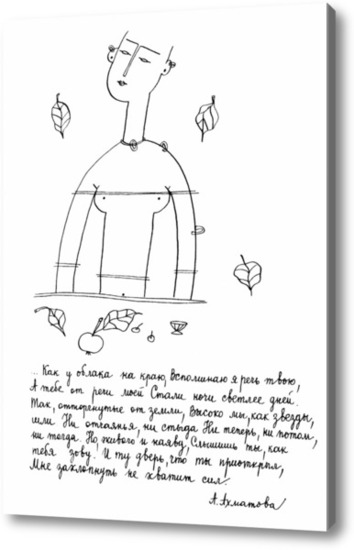 ... Как у облака на краю, Вспоминаю я речь твою,
А тебе от речи моей Стали ночи светлее дней.
Так, отторгнутые от земли, Высоко мы, как звезды,
шли. Ни отчаянья, ни стыда Ни теперь, ни потом,
ни тогда. Но живого и наяву, Слышишь ты, как
тебя зову. И ту дверь, что ты приоткрыл,
Мне захлопнуть не хватит сил.
А. Ахматова